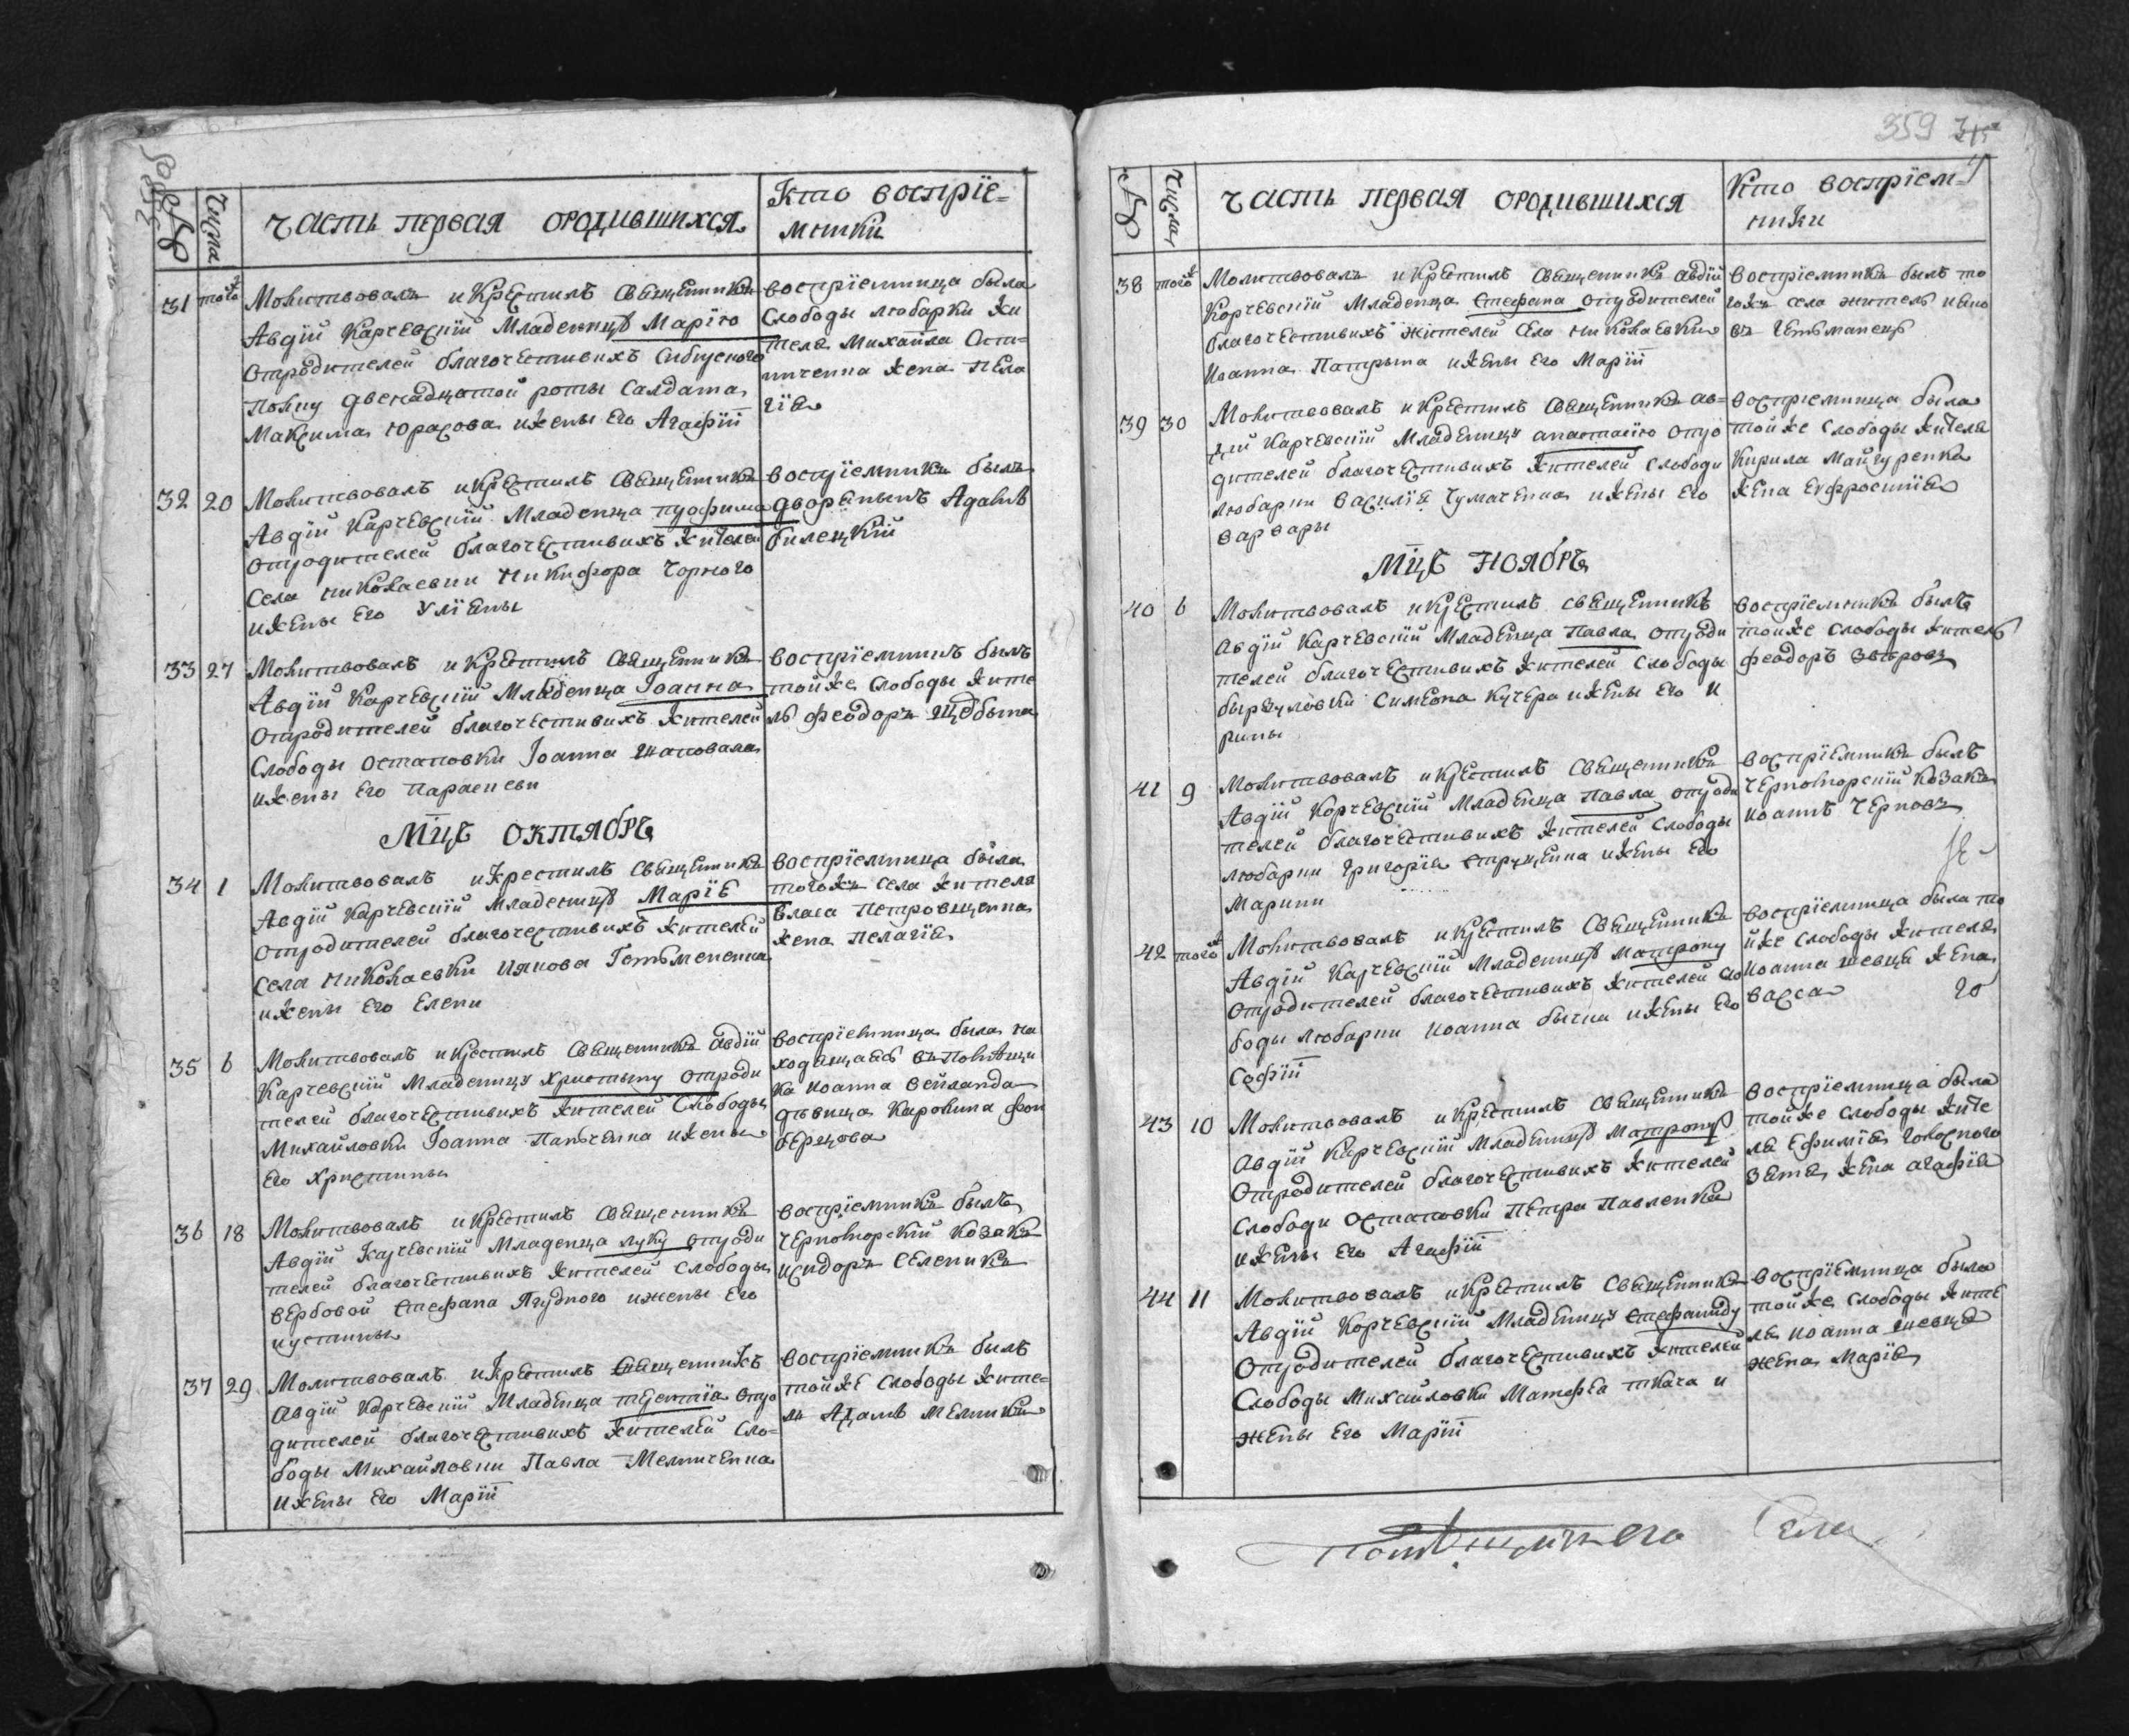 Числа
Часть первая ородившихся
Кто восприе=
мники
31 того
Молитвовалъ и крестилъ Священникъ
Авдій Карчевскій Младеницу Марїю
отродителей благочестивихъ Сибирского
полку двенадцатой роты Салдата
Максима Юрасова ижены Его Агафіи
восприемница была
Слободы любарки жи
теля Михаила Оста=
пченка жена Пела
гїя
32 20
Молитвовалъ и крестилъ Священникъ
Авдій Карчевскій Младенца трофима
отродителей благочестивихъ жителей
Села николаевки Никифора Чорного
ижены Его Улїяны
восприемникъ былъ
дворянынъ Адамъ
билецкій
33 27
Молитвовалъ и крестилъ Священникъ
Авдій Карчевскій Младенца Іоанна
отродителей благочестивихъ жителей
Слободы остаповки Іоанна шаповала
ижены Его Параскеви
восприемникъ былъ
тойже слободы жите
ль феодоръ
Мцъ октябръ
34 1
Молитвовалъ икрестилъ Священникъ
Авдій Карчевскій младеницу Марїю
отродителей благочестивихъ жителей
села николаевки Іякова Гетьмененка
ижены Его Елени
восприемница была
тогожъ села жителя
власа Петровщенка
жена пелагїя
35 6
Молитвовалъ икрестилъ Священникъ Авдій
Карчевскій Младеницу христыну отроди
телей благочестивихъ жителей Слободы
Михайловки Іоанна Панченка ижены
Его Христины
восприемница была на
ходящаясь въ помѣщи
ка иоанна вейланда
дѣвица Каролина фон
36 18
Молитвовалъ икрестилъ Священникъ
Авдій Карчевскій Младенца луку отроди
телей благочестивихъ жителей слободы
вербовой Стефана ижены Его
иустины
восприемникъ былъ
черноморскій козакъ
исидоръ Селеникъ
37 29
Молитвовалъ икрестилъ Священникъ
Авдій Карчевскій Младенца терентїя отро
дителей благочестивихъ жителей Сло=
боды Михайловки Павла Мелниченка
ижены Его Маріи
восприемникъ былъ
тойже Слободы жите=
ль Адамъ Мелникъ
359
Числа
Часть первая ородившихся
Кто восприем=
ники
38 того
Молитвовалъ икрестилъ Священникъ Авдій
Корчевскій Младенца Стефана отродителей
благочестивихъ жителей Села николаевки
Иоанна Патрыша ижены Его Маріи
восприемникъ былъ то
гожъ села житель иако
въ гетьманецъ
39 30
Молитвовалъ икрестилъ Священникъ Ав=
дій Карчевскій Младеницу анастасїю отро
дителей благочестивихъ жителей Слободи
любарки Василїя Чумаченка ижены Его
варвары
восприемница была
тойже слободы жителя
Кирила Майгуренка
жена Ефросиния
Мцъ ноябръ
40 6
Молитвовалъ икрестилъ священникъ
Авдій Карчевскій Младенца Павла отроди
телей благочестивихъ жителей Слободы
бырзуловки Симеона Кучера ижены Его И
рины
восприемникъ былъ
тойже слободы житель
феодоръ
41 9
Молитвовалъ икрестилъ Священникъ
Авдій Корчевскій Младенца Павла отроди
телей благочестивихъ жителей Слободы
любарки Григорїя ижены Его
Марини
восприемникъ былъ
черноморскій козакъ
иоаннъ Черновъ
42 того
Молитвовалъ икрестилъ Священникъ
Авдій Карчевскій Младеницу матрону
отродителей благочестивихъ жителей сло
боды любарки иоанна бычка ижены Его
Софіи
восприемница была то
йже слободы жителя
иоанна шевця жена
васса
43 10
Молитвовалъ икрестилъ Священникъ
Авдій Карчевскій Младеницу Матрону
отродителей благочестивихъ жителей
слободи остаповки Петра Павленка
ижены Его Агафіи
восприемница была
тойже слободы жите
ля Ефимїя
зятя жена агафїя
44 11
Молитвовалъ икрестилъ Священникъ
Авдій Корчевскій Младеницу Стефаниду
отродителей благочестивихъ жителей
Слободы Михайловки Матфея ткача и
жены Его Маріи
восприемница была
тойже слободы жите
ля иоанна шевця
жена Марїя